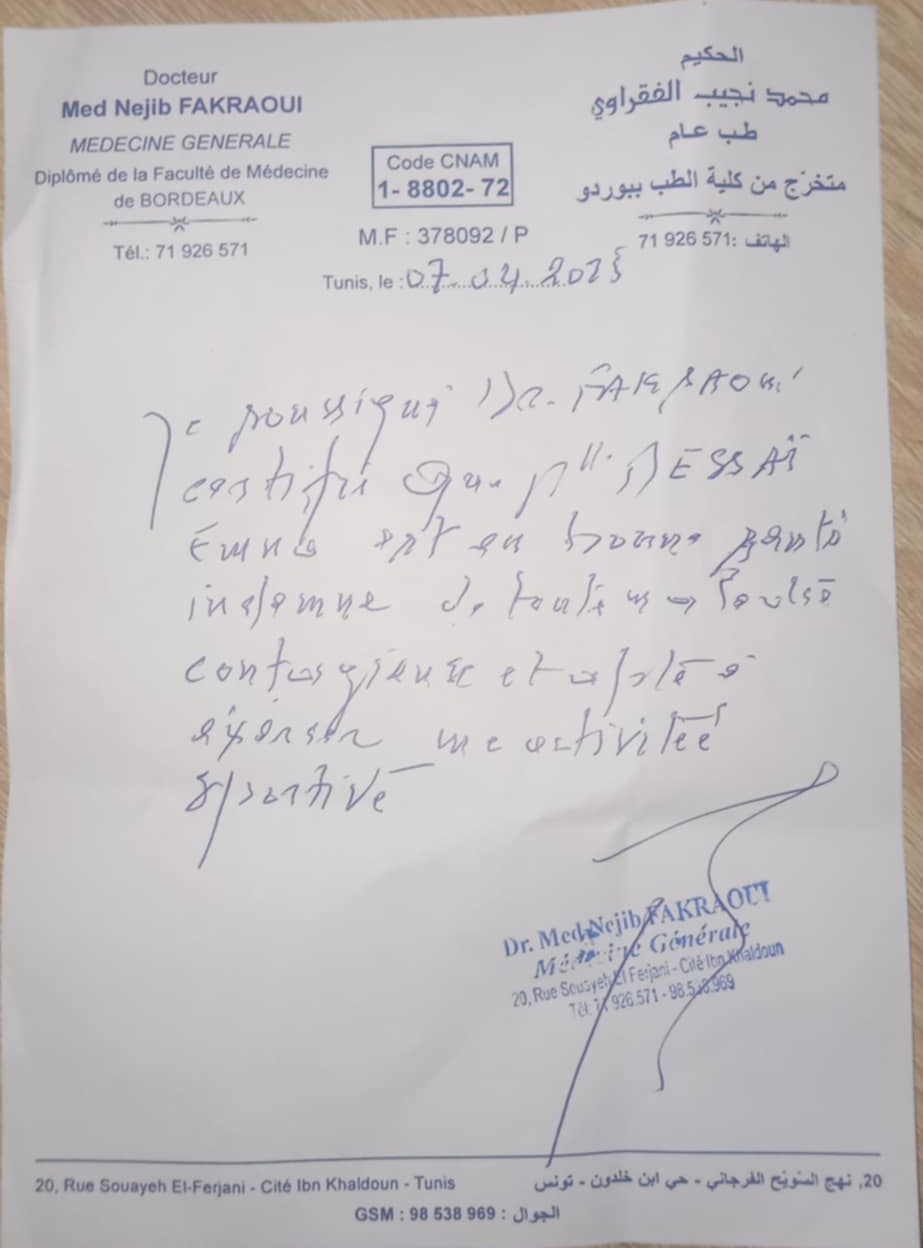 Docteur
Med Nejib FAKRAOUI
MEDECINE GENERALE
Diplômé de la Faculté de Médecine
de BORDEAUX
Tél.: 71 926 571
Code CNAM
1- 8802- 72
M.F : 378092 / P
الحكيم
محمد نجيب الفقراوي
طب عام
متخرّج من كلية الطب ببوردو
الهاتف :71 926 571
Tunis, le : 07.04.2025
Je soussigné Dr. FAKRAOUI
certifie que Mlle
est en bonne santé
indemne de toute
contagieuse et apte à
exercer une activitée
sportive
Dr. Med Nejib FAKRAOUI
Médecine Générale
20, Rue Souayeh El Ferjani - Cité Ibn Khaldoun
Tél: 71 926.571 - 98.538.969
20, Rue Souayeh El-Ferjani - Cité Ibn Khaldoun - Tunis
20, نهج السّويّح الفرجاني - حي ابن خلدون - تونس
GSM : 98 538 969 : الجوال